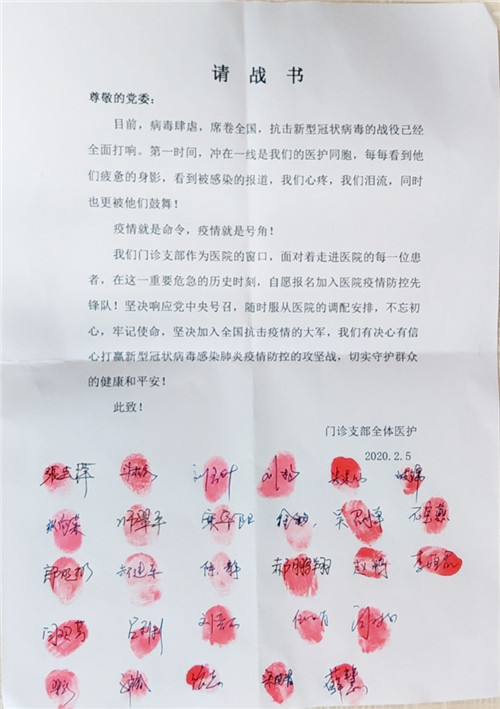 请战书
尊敬的党委：
目前，病毒肆虐，席卷全国，抗击新型冠状病毒的战役已经
全面打响。第一时间，冲在一线是我们的医护同胞，每每看到他
们疲惫的身影，看到被感染的报道，我们心疼，我们泪流，同时
也更被他们鼓舞！
疫情就是命令，疫情就是号角！
我们门诊支部作为医院的窗口，面对着走进医院的每一位患
者，在这一重要危急的历史时刻，自愿报名加入医院疫情防控先
锋队！坚决响应党中央号召，随时服从医院的调配安排，不忘初
心，牢记使命，坚决加入全国抗击疫情的大军，我们有决心有信
心打赢新型冠状病毒感染肺炎疫情防控的攻坚战，切实守护群众
的健康和平安！
此致！
门诊支部全体医护
2020.2.5
陈静 郝鹏翔
薛慧